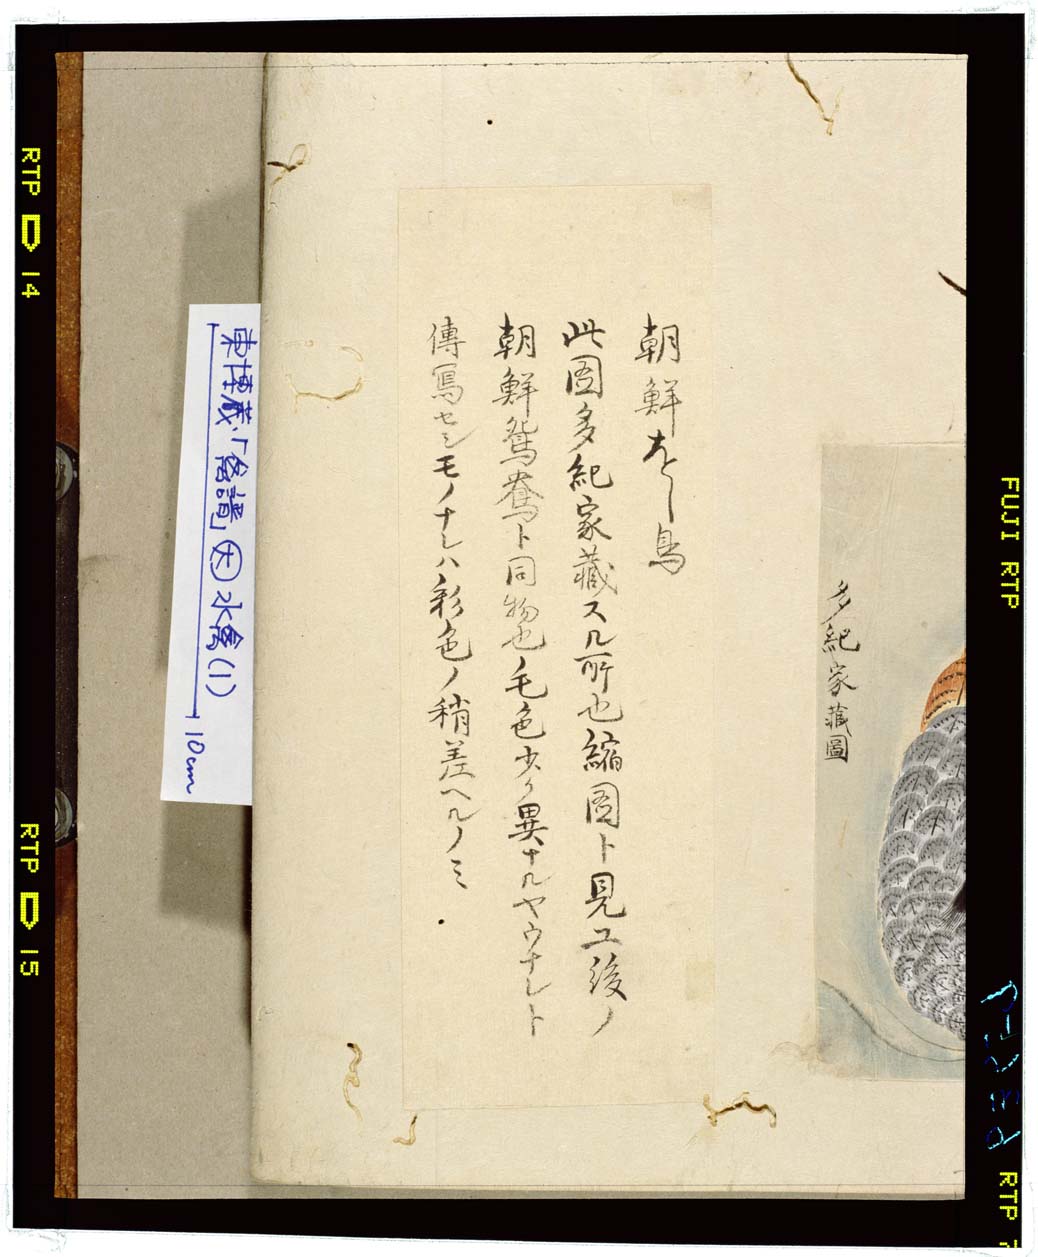 朝鮮をし鳥
此圖多紀家藏スル所也縮圖ト見エ後ノ
朝鮮鴛鴦ト同物也毛色少々異ナルヤウナレト
傳寫セシモノナレハ彩色ノ稍差ヘルノミ
多紀家蔵圖
東博蔵「禽譜」 大 水禽(1)
10cm
RTP 14
RTP 15
FUJI RTP
RTP 7